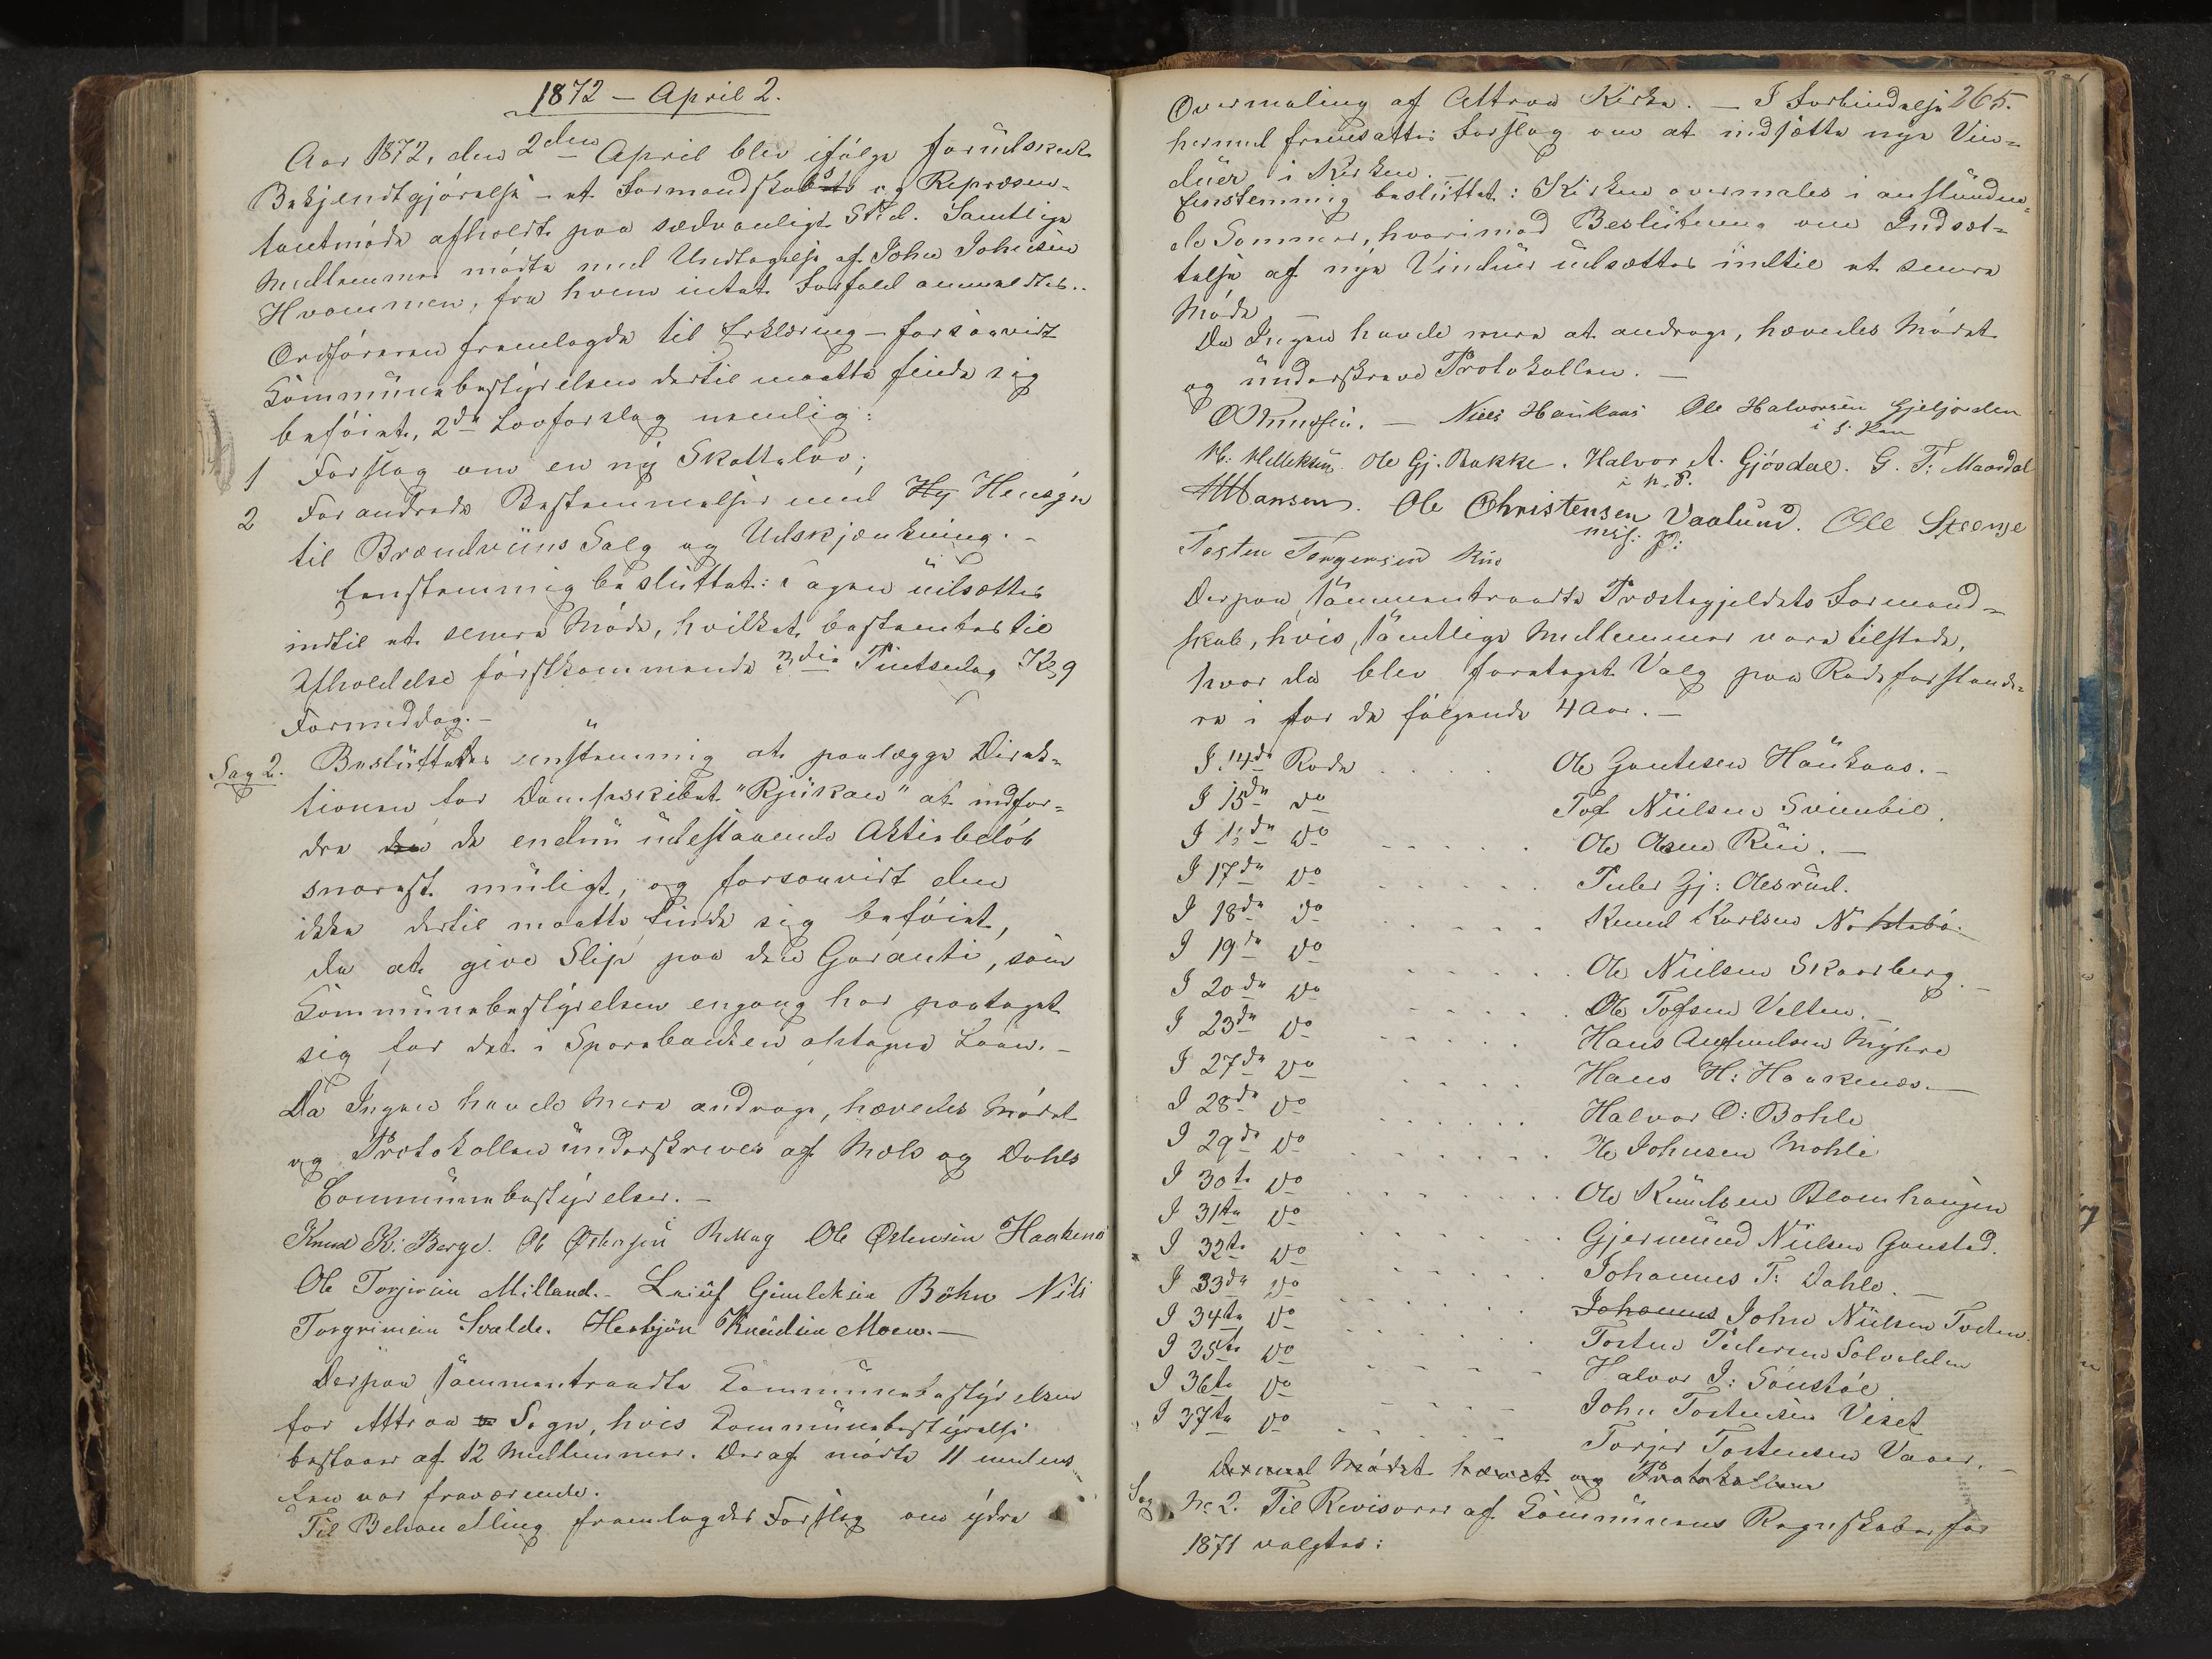 1872 – April 2.
Aar 1872, den 2den April blev ifølge forudskeet
Bekjendtgjørelse – et Formandskabs og Repræsen-
tantmøde afholdt paa sædvanligt Sted. Samtlige
Medlemmer mødte med Undtagelse af John Johnsen
Hvammen, fra hvem intet Forfald anmeldtes.
Ordføreren fremlagde til Erklæring – forsaavidt
Kommunebestyrelsen dertil maatte finde sig
beføiet, 2de Lovforslag nemlig:
1 Forslag om en ny Skattelov;
2 Forandrede Bestemmelser med Hy Hensyn
til Brændeviins Salg og Udskjænkning. –
Eenstemmig besluttet: Sagen udsættes
indtil et senere Møde, hvilket bestemtes til
Afholdelse førstkommende 3die Pintsedag Kl 9
Formiddag. –
Sag 2. Besluttedes enstemmig at paalægge Direk-
tionen for Dampskibet "Rjukan" at indfor-
dre den de endnu udestaaende Aktiebeløb
snarest muligt, og forsaavidt den
ikke dertil maatte finde sig beføiet,
da at give Slip paa den Garanti, som
Kommunebestyrelsen engang har paataget
sig for det i Sparebanken optagne Laan. –
Da Ingen havde mere andrage, hævedes Mødet
og Protokollen underskreves af Mæls og Dahls
Communebestyrelser. –
Knud K: Berge. Ole Østensen Ole Østensen Haakenæs
Ole Torjersen Milland. – Leiuf Gunleksen Bøhn Nils
Torgrimsen Svalde. Herbjørn Knudsen Moen. –
Derpaa sammentraadte Kommunebestyrelsen
for Attraa Sogn, hvis Kommunebestyrelse
bestaaer af 12 Medlemmer. Deraf mødte 11 medens
Een var fraværende.
Til Behandling fremlagdes Forslag om ydre
265.
Overmaling af Attraa Kirke. – I Forbindelse
hermed fremsattes Forslag om at indsætte nye Vin-
duer i Kirken. –
Eenstemmig besluttet: Kirken overmales i anstunden-
de Sommer, hvorimod Beslutning om Indsæt-
telse af nye Vinduer udsættes indtil et senere
Møde –
Da Ingen havde mere at andrage, hævedes Mødet
og underskreve Protokollen. –
– Niels Haukaas Ole Halvorsen Gjeljorden
Ole Gj. Bakke. Halvor A. Gjøvdal. G. T: Maardal
Hansen. Ole Christensen Vaalund. Ole Steenje
Tosten Torgersen Rue
Derpaa sammentraadte Præstegjeldets Formand-
skab, hvis samtlige Medlemmer vare tilstede,
hvor da blev foretaget Valg paa Rodeforstande-
re i for de følgende 4 Aar. –
I 14de Rode . . . . Ole Gautesen Haukaas. –
I 15de do Tof Nielsen Svinbil.
I 16de do . . . . . Ole Olsen Rui. –
I 17de do . . . . . Peder Gj: Olesrud.
I 18de do . . . . . Knud Karlsen Nordstebø. –
I 19de do . . . . . Ole Nielsen Skaarberg. –
I 20de do . . . . . Ole Tofsen Velten. –
I 23de do . . . . . Hans Amundsen Myhre
I 27de do . . . . Hans H: Haakenæs. –
I 28de do . . . . . . Halvor O: Bøhle
I 29de do . . . . . . Ole Johnsen Mohli
I 30te do . . . . . . Ole Knudsen Blomhaugen
I 31te do . . . . . . Gjermund Nielsen Gaustad.
I 32te do . . . . . Johannes T: Dahle. –
I 33de do . . . . . . Johannes John Nielsen Traaen.
I 34te do Tosten Pedersen Solvolden
I 35te do . . . . Halvor J: Sønstøe.
I 36te do . . . . John Tostensen Viset
I 37te do . . . . . Torjer Tostensen Vaaer. –
Dermed Mødet hævet og Protokollen
Sag No 2. Til Revisorer af Kommunens Regnskaber for
1871 valgtes: